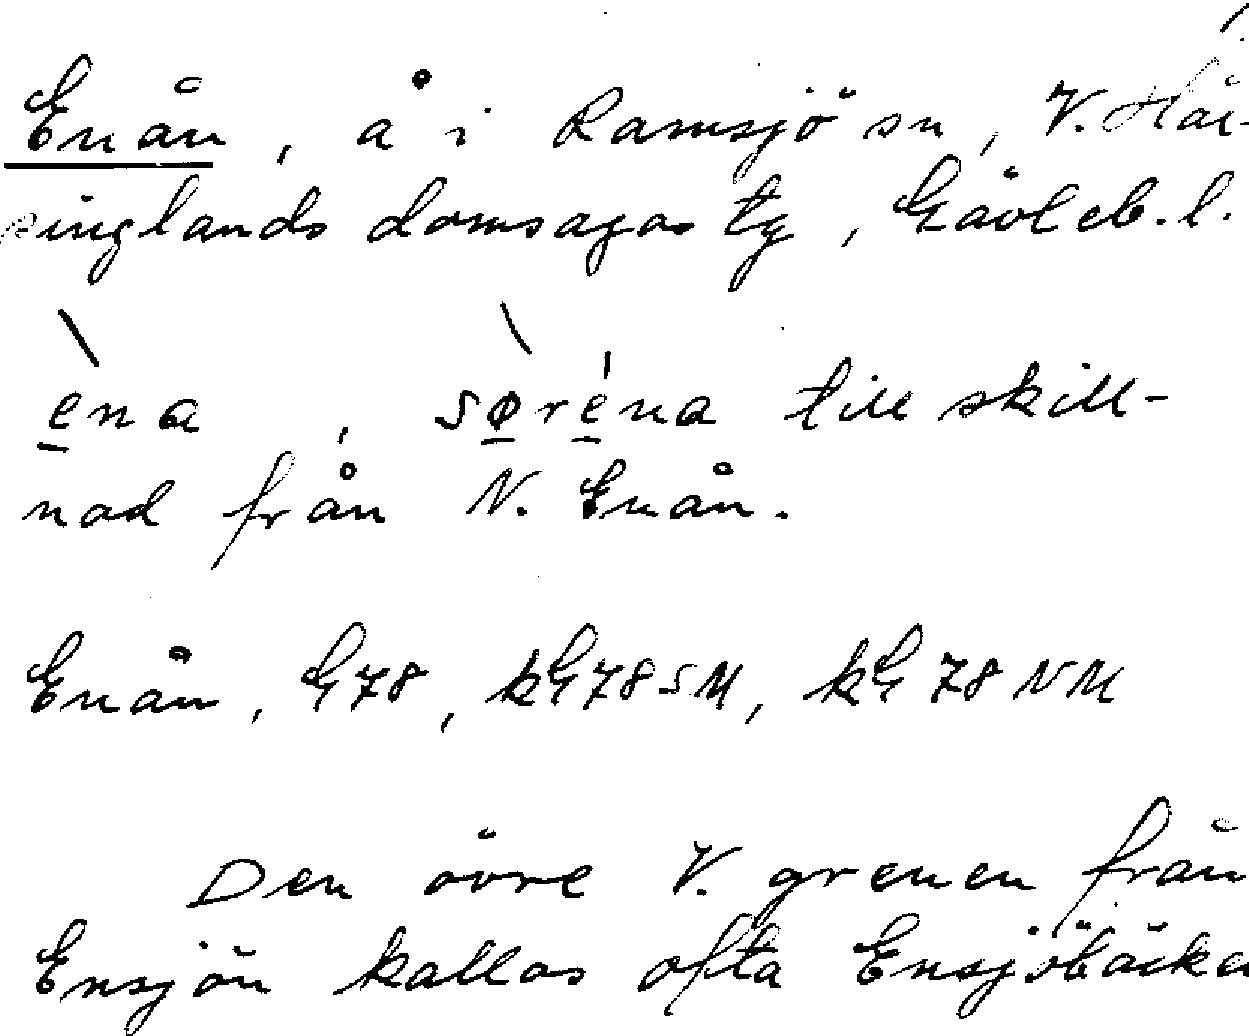 Enån, å i Ramsjö sn, V. Häl-
singlands domsagas tg, Gävleb. l.
èna, søréna till skill-
nad från N. Enån.
Enån, G78, kG78SM, kG78NM
Den övre V. grenen från
Ensjön kallas ofta Ensjöbäcken